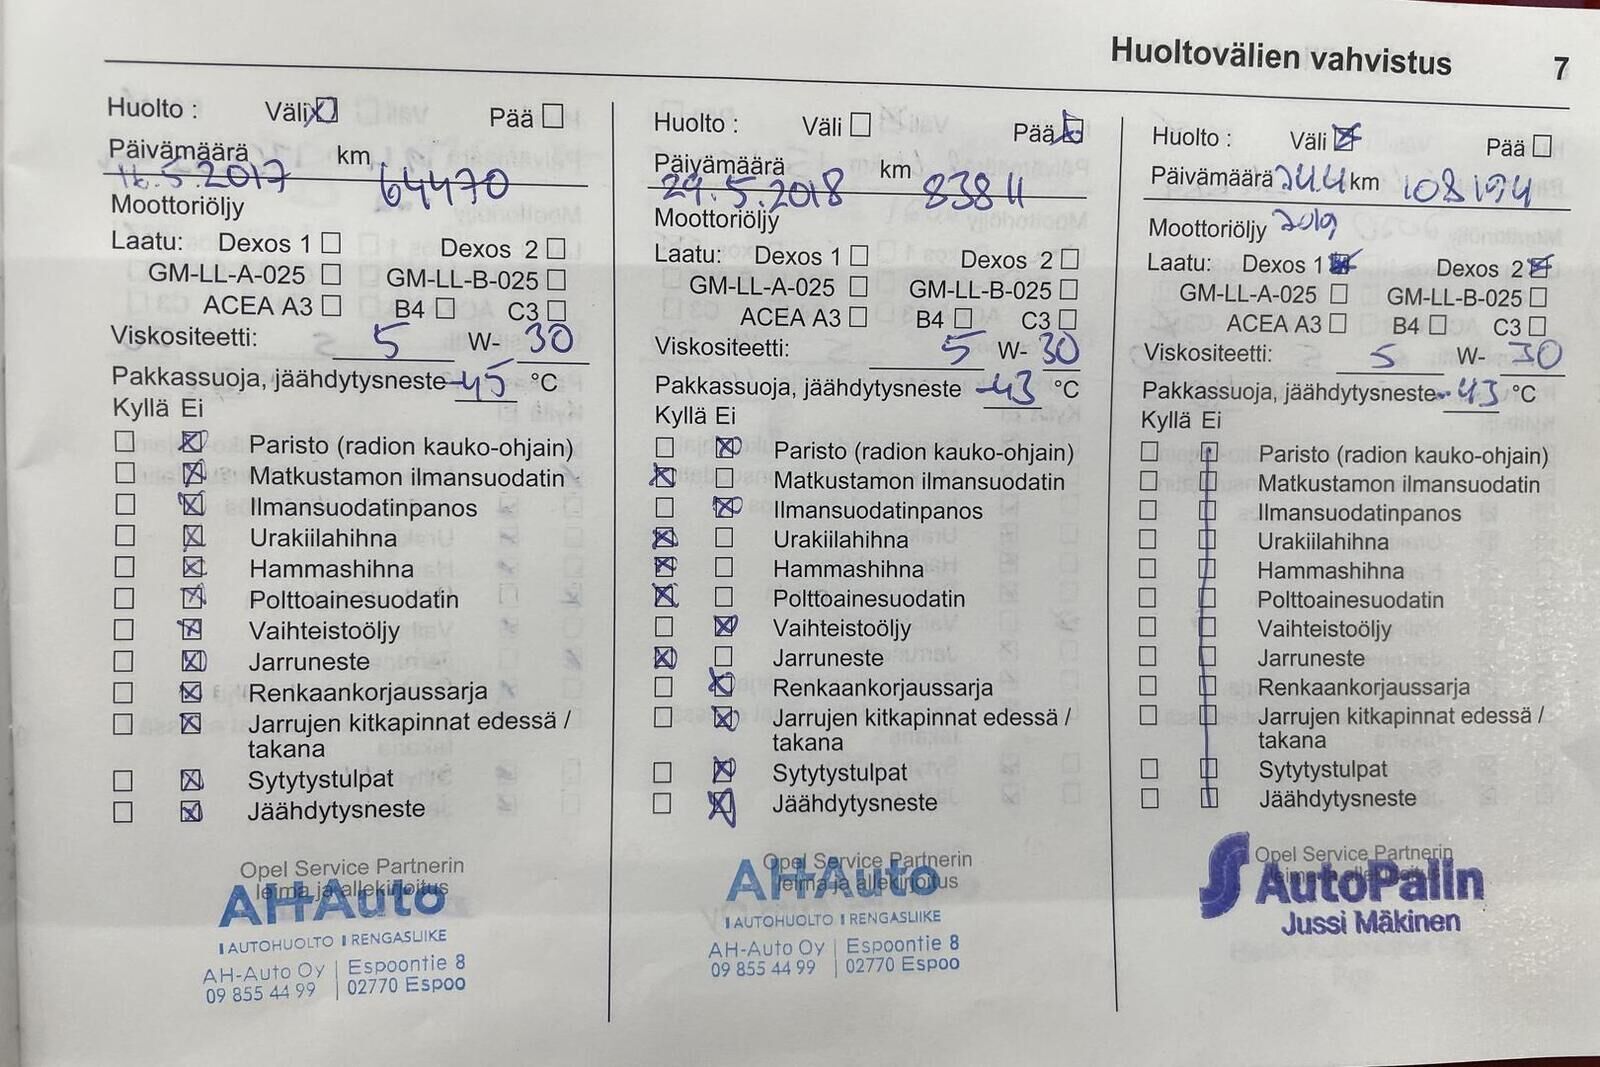 Huoltovälien vahvistus 7
Huolto : Väli Pää
Päivämäärä km
16.5.2017 64470
Moottoriöljy
Laatu: Dexos 1 Dexos 2
GM-LL-A-025 GM-LL-B-025
ACEA A3 B4 C3
Viskositeetti: 5 W- 30
Pakkassuoja, jäähdytysneste -45 °C
Kyllä Ei
Paristo (radion kauko-ohjain)
Matkustamon ilmansuodatin
Ilmansuodatinpanos
Urakiilahihna
Hammashihna
Polttoainesuodatin
Vaihteistoöljy
Jarruneste
Renkaankorjaussarja
Jarrujen kitkapinnat edessä /
takana
Sytytystulpat
Jäähdytysneste
Opel Service Partnerin
leima ja allekirjoitus
AH-Auto
AUTOHUOLTO RENGASLIIKE
AH-Auto Oy | Espoontie 8
09 855 44 99 | 02770 Espoo
Huolto : Väli Pää
Päivämäärä km
29.5.2018 83811
Moottoriöljy
Laatu: Dexos 1 Dexos 2
GM-LL-A-025 GM-LL-B-025
ACEA A3 B4 C3
Viskositeetti: 5 W- 30
Pakkassuoja, jäähdytysneste -43 °C
Kyllä Ei
Paristo (radion kauko-ohjain)
Matkustamon ilmansuodatin
Ilmansuodatinpanos
Urakiilahihna
Hammashihna
Polttoainesuodatin
Vaihteistoöljy
Jarruneste
Renkaankorjaussarja
Jarrujen kitkapinnat edessä /
takana
Sytytystulpat
Jäähdytysneste
Opel Service Partnerin
leima ja allekirjoitus
AH-Auto
AUTOHUOLTO RENGASLIIKE
AH-Auto Oy | Espoontie 8
09 855 44 99 | 02770 Espoo
Huolto : Väli Pää
Päivämäärä 24.4 km 108194
Moottoriöljy 2019
Laatu: Dexos 1 Dexos 2
GM-LL-A-025 GM-LL-B-025
ACEA A3 B4 C3
Viskositeetti: 5 W- 30
Pakkassuoja, jäähdytysneste -43 °C
Kyllä Ei
Paristo (radion kauko-ohjain)
Matkustamon ilmansuodatin
Ilmansuodatinpanos
Urakiilahihna
Hammashihna
Polttoainesuodatin
Vaihteistoöljy
Jarruneste
Renkaankorjaussarja
Jarrujen kitkapinnat edessä /
takana
Sytytystulpat
Jäähdytysneste
Opel Service Partnerin
leima ja allekirjoitus
AutoPalin
Jussi Mäkinen